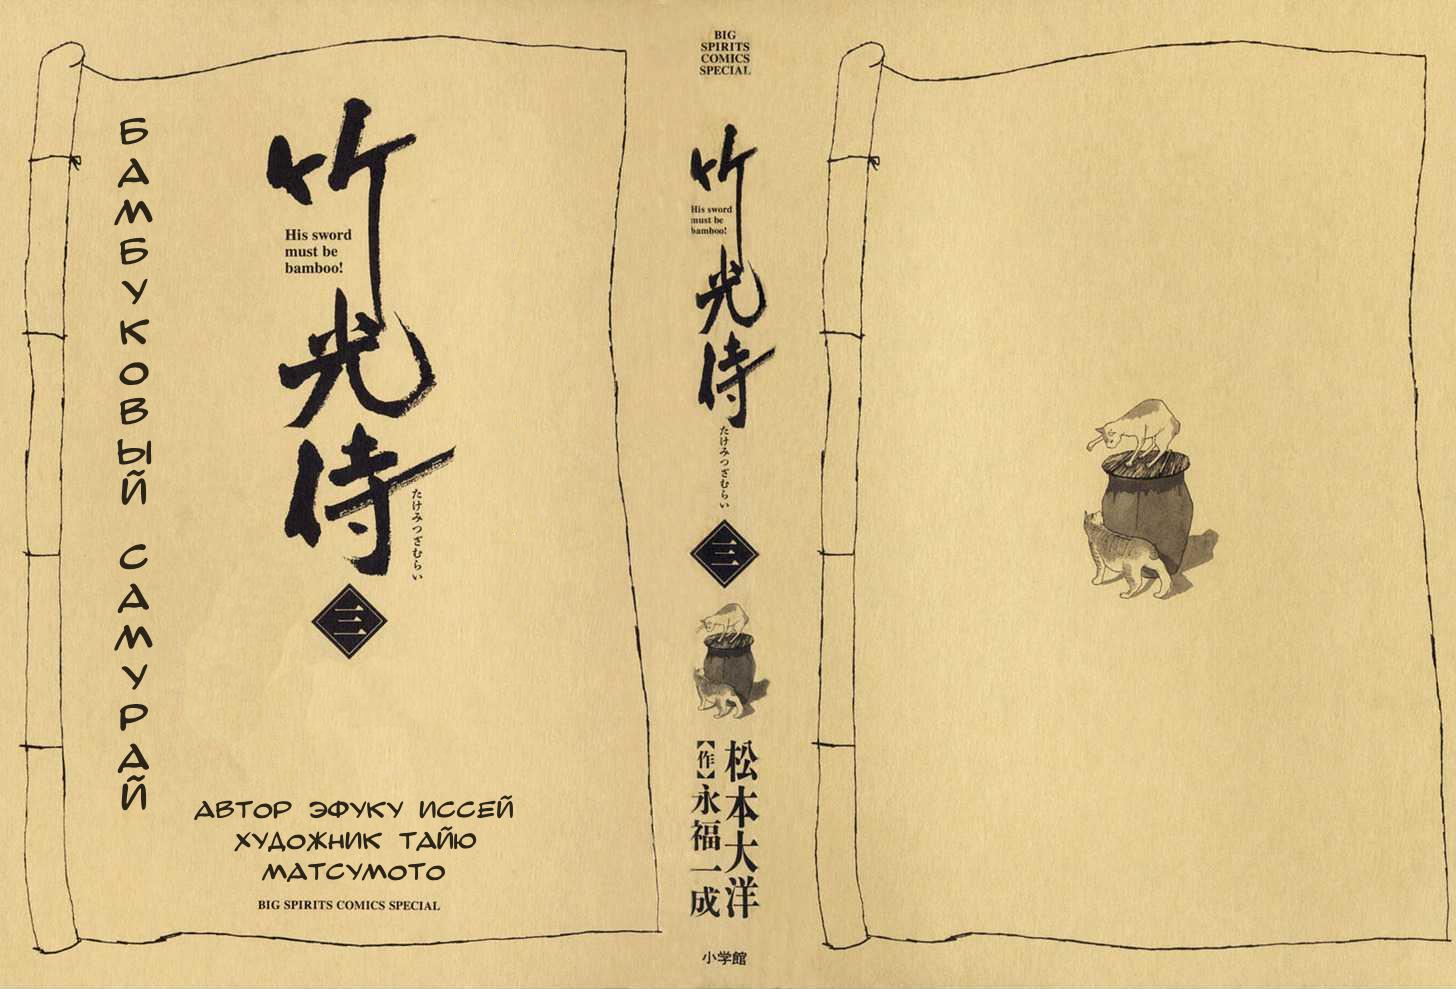 БАМБУКОВЫЙ САМУРАЙ
竹光侍
His sword
must be
bamboo!
たけみつざむらい
三
АВТОР ЭФУКУ ИССЕЙ
ХУДОЖНИК ТАЙЮ
МАТСУМОТО
BIG SPIRITS COMICS SPECIAL
BIG
SPIRITS
COMICS
SPECIAL
竹光侍
His sword
must be
bamboo!
たけみつざむらい
三
松本大洋
【作】永福一成
小学館